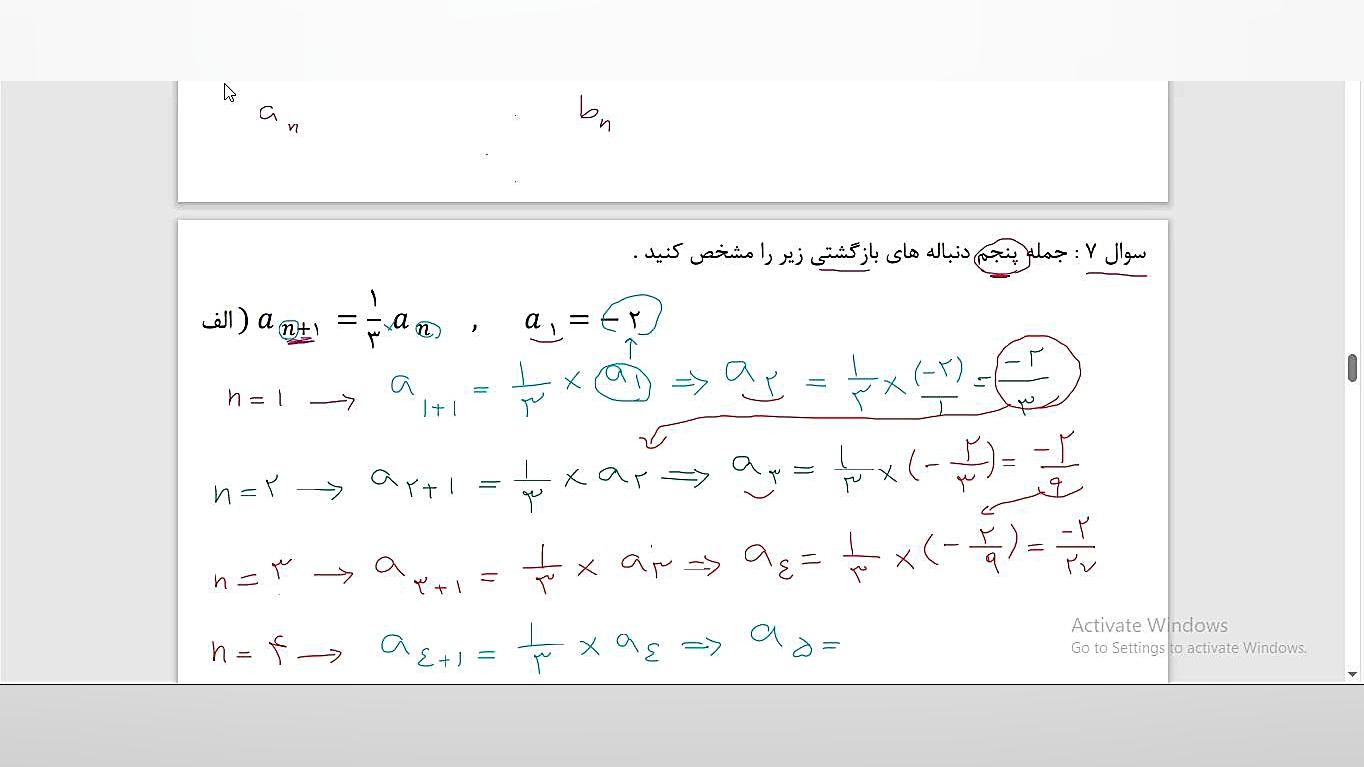 aₙ bₙ
سوال ۷ : جمله پنجم دنباله های بازگشتی زیر را مشخص کنید .
الف) a n+۱ = ۱/۳ × a n , a ۱ = − ۲
n = ۱ → a ۱+۱ = ۱/۳ × a۱ ⇒ a۲ = ۱/۳ × (-۲)/۱ = -۲/۳
n = ۲ → a ۲+۱ = ۱/۳ × a۲ ⇒ a۳ = ۱/۳ × (-۲/۳) = -۲/۹
n = ۳ → a ۳+۱ = ۱/۳ × a۳ ⇒ a٤ = ۱/۳ × (-۲/۹) = -۲/۲۷
n = ۴ → a ٤+۱ = ۱/۳ × a٤ ⇒ a۵ =
Activate Windows
Go to Settings to activate Windows.